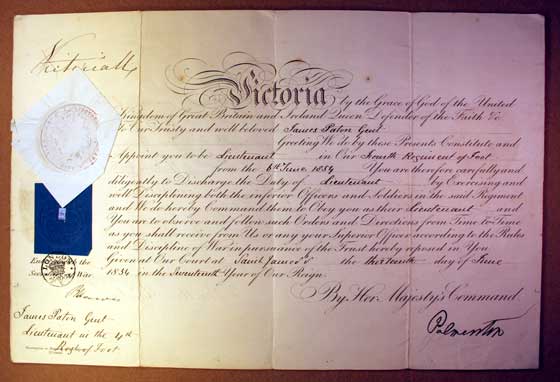 Victoria R
Victoria by the Grace of God of the United
Kingdom of Great Britain and Ireland Queen Defender of the Faith &c
To Our Trusty and well beloved James Paton Gent
Greeting We do by these Presents Constitute and
Appoint you to be Lieutenant in Our Fourth Regiment of Foot
from the 6th June 1854 You are therefore carefully and
diligently to Discharge the Duty of Lieutenant by Exercising and
well Disciplining both the inferior Officers and Soldiers in the said Regiment
and We do hereby Command them to Obey you as their Lieutenant and
You are to observe and follow such Orders and Directions from Time to Time
as you shall receive from Us or any your Superior Officer according to the Rules
and Discipline of War in pursuance of the Trust hereby reposed in You
Given at Our Court at Saint James's the thirteenth day of June
1854 in the Seventeenth Year of Our Reign
By Her Majesty's Command
Palmerston
the
War
James Paton Gent
Lieutenant in the 4th
Regt of Foot